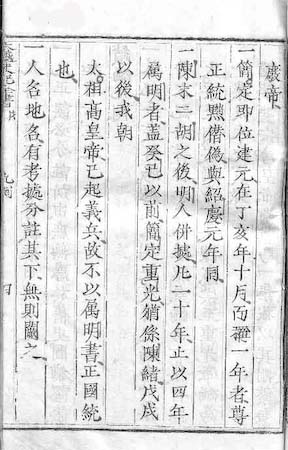 廢帝
一簡定即位建元在丁亥年十月而一年者尊
正統黜僭偽與紹慶元年同
一陳末二胡之後明人併據凡二十年止以四年
屬明者蓋癸巳以前簡定重光猶係陳緒戊戌
以後我朝
太祖高皇帝已起義兵故不以屬明書正國統
也
一人名地名有考據分註其下無則闕之